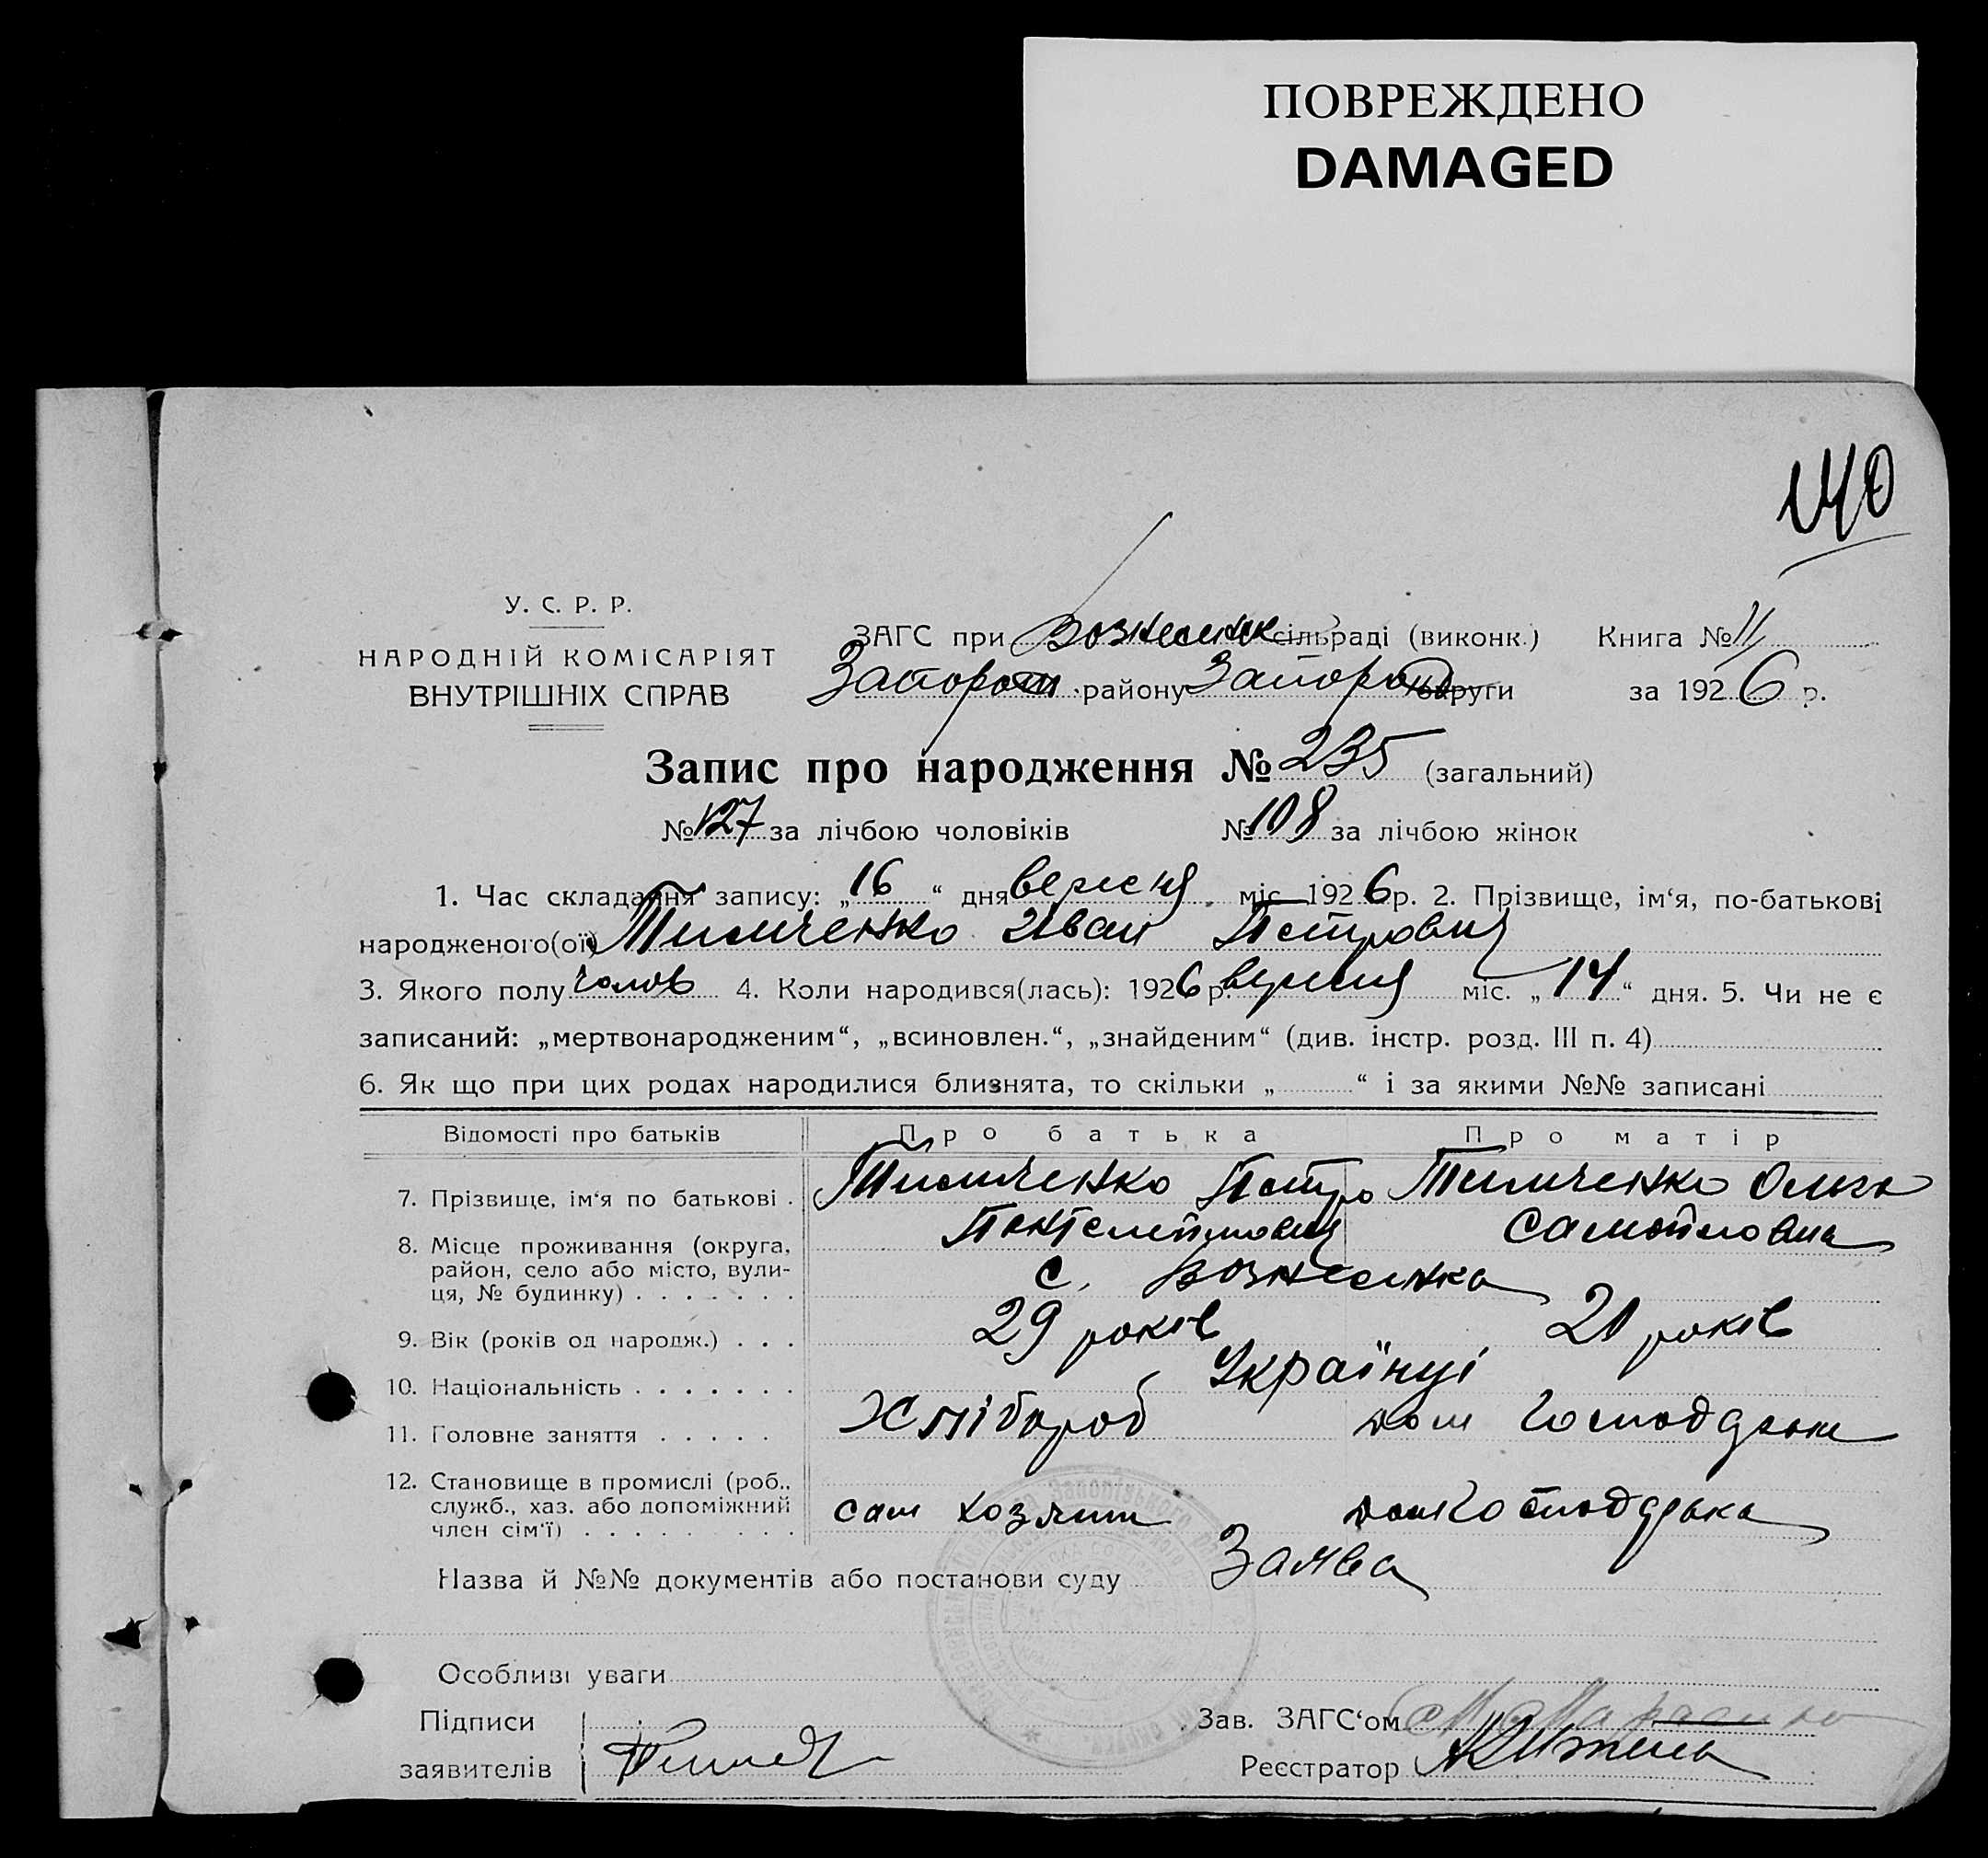 ПОВРЕЖДЕНО
DAMAGED
140
У. С. Р. Р.
НАРОДНІЙ КОМІСАРІЯТ
ВНУТРІШНІХ СПРАВ
ЗАГС при Вознесенск сільраді (виконк.) Книга № II
Запорож району Запорож округи за 1926 р.
Запис про народження № 235 (загальний)
№ 127 за лічбою чоловіків № 108 за лічбою жінок
1. Час складання запису: „16“ дня вересня міс 1926 р. 2. Прізвище, ім‘я, по-батькові
народженого(ої) Тимченко Иван Петрович
3. Якого полу чолов 4. Коли народився(лась): 1926 р. вересня міс. „14“ дня. 5. Чи не є
записаний: „мертвонародженим“, „всиновлен.“, „знайденим“ (див. інстр. розд. III п. 4)
6. Як що при цих родах народилися близнята, то скільки „ “ і за якими №№ записані
Відомості про батьків Про батька Про матір
7. Прізвище, ім‘я по батькові . Тимченко Петро Тимченко Ольга
Пантелеймович Самойловна
8. Місце проживання (округа,
район, село або місто, вули-
ця, № будинку) . . . . . . . с. Вознесенка
9. Вік (років од народж.) . . . 29 років 21 років
10. Національність . . . . . . . Українці
11. Головне заняття . . . . . Хлібороб дом господарка
12. Становище в промислі (роб.,
служб., хаз. або допоміжний
член сім‘ї) . . . . . . . . . сам хозяин дом господарка
Назва й №№ документів або постанови суду Заява
Особливі уваги
Підписи Зав. ЗАГС‘ом
заявителів Реєстратор